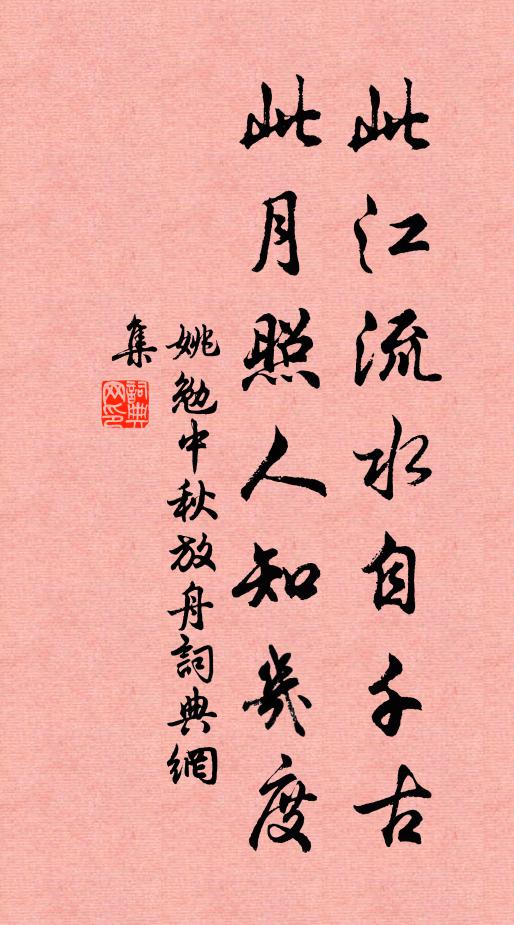 此江流水自千古
此月照人知幾度
姚勉中秋放舟詞典網
集
詞典
网印